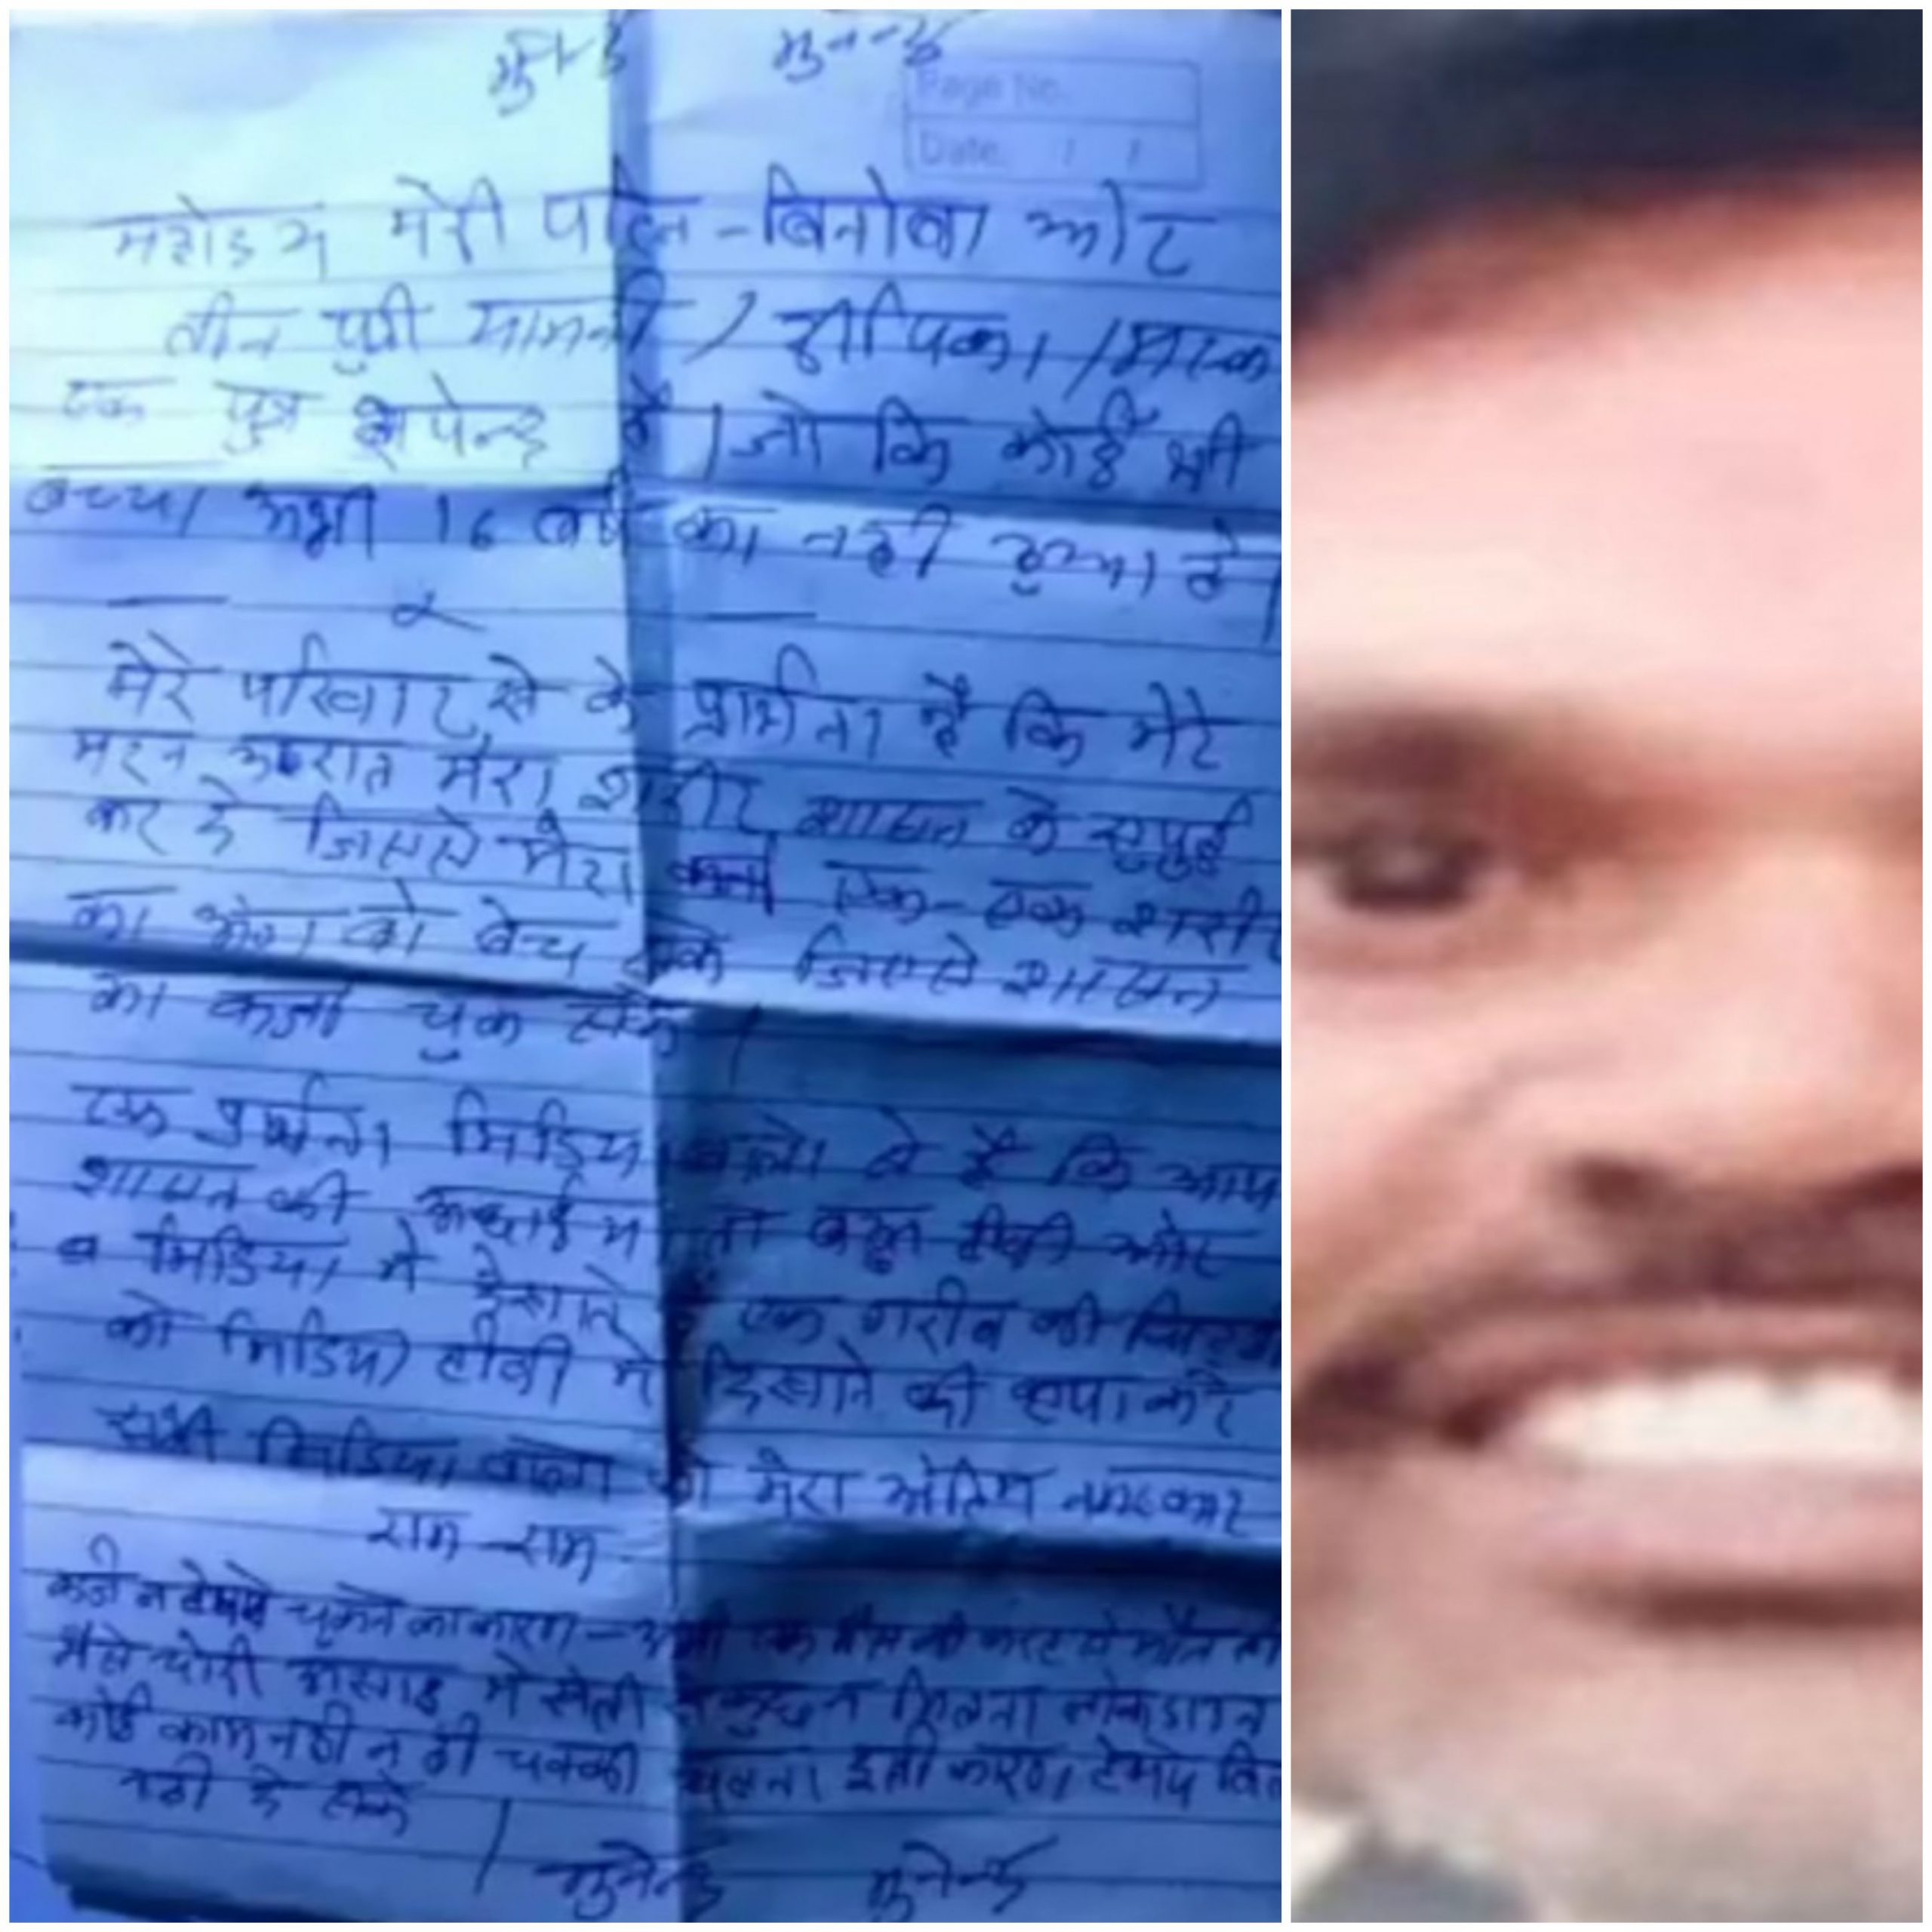 मुनेन्द्र मुनेन्द्र
Page No.
Date / /
महोदय मेरी पत्नि - विनोबा और
तीन पुत्री मानसी / दीपिका /
एक पुत्र है । जो कि कोई भी
बच्चा अभी 16 वर्ष का नही हुआ है ।
मेरे परिवार से के प्रार्थना है कि मेरे
मरन उपरात मेरा शरीर शासन के सुपुर्द
कर दे जिससे मेरा एक - एक शरीर
का अंग को बेच सके जिससे शासन
का कर्जा चुक सके ।
एक प्रार्थना मिडिया वालो से है कि आप
शासन की तो टीवी और
व मिडिया मे एक गरीब की
को मिडिया टीवी मे दिखाने की कृपा करे
सभी मिडिया वालो को मेरा अंतिम नमस्कार
राम - राम
कर्ज न चुकने का कारण - एक भैंस की करंट से मौत
भैंस चोरी असाड मे खेती कुछ न मिलना लोकडाउन
कोई काम नही न ही चक्की चलना इसी कारण बिल
नही दे सके ।
मुनेन्द्र मुनेन्द्र